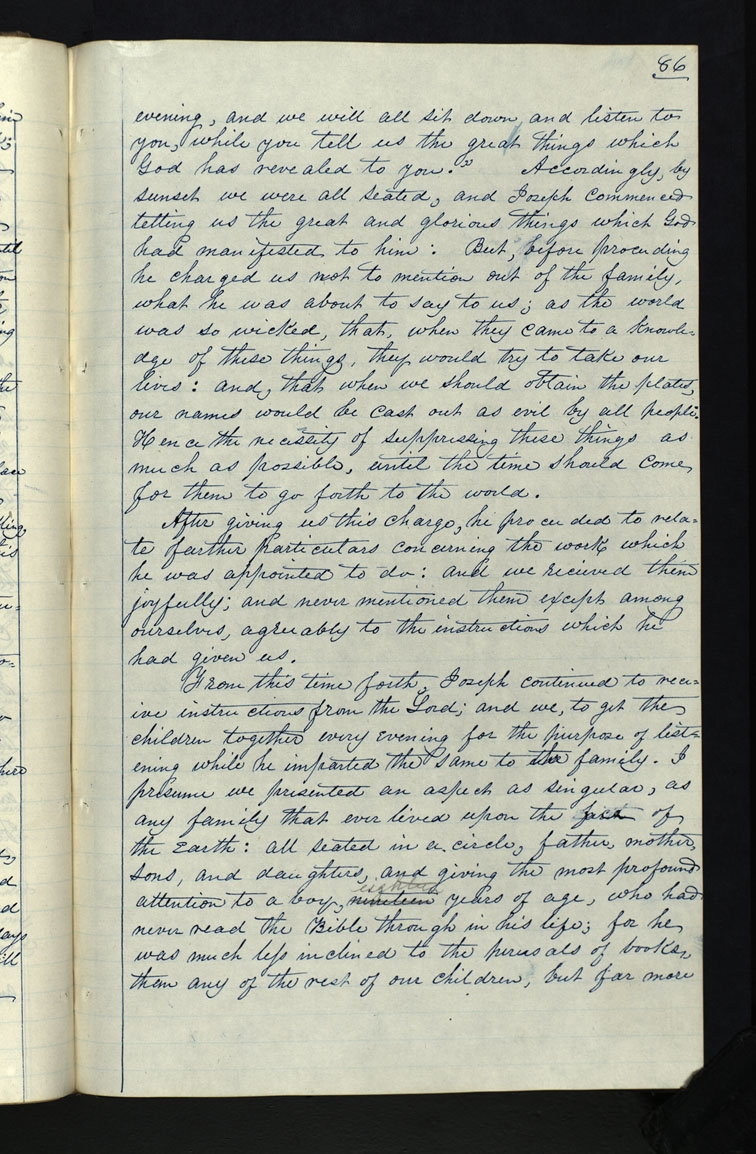 86
evening, and we will all sit down, and listen to
you, while you tell us the great things which
God has revealed to you." Accordingly, by
sunset we were all seated, and Joseph commenced
telling us the great and glorious things which God
had manifested to him: But, before proceeding
he charged us not to mention out of the family,
what he was about to say to us; as the world
was so wicked, that, when they came to a knowle-
dge of these things, they would try to take our
lives: and, that when we should obtain the plates,
our names would be cast out as evil by all people.
Hence the necessity of suppressing these things as
much as possible, until the time should come,
for them to go forth to the world.
After giving us this charge, he proceeded to rela=
te farther particulars concerning the work which
he was appointed to do: and we recieved them
joyfully; and never mentioned them except among
ourselves, agreeably to the instructions which he
had given us.
From this time forth, Joseph continued to rece=
ive instructions from the Lord; and we, to get the
children together every evening for the purpose of list=
ening while he imparted the same to the family. I
presume we presented an aspect as singular, as
any family that ever lived upon the face of
the Earth: all seated in a circle, father, mother,
sons, and daughters, and giving the most profound
eighteen
attention to a boy, nineteen years of age, who had
never read the Bible through in his life; for he
was much less inclined to the perusals of books,
then any of the rest of our children, but far more